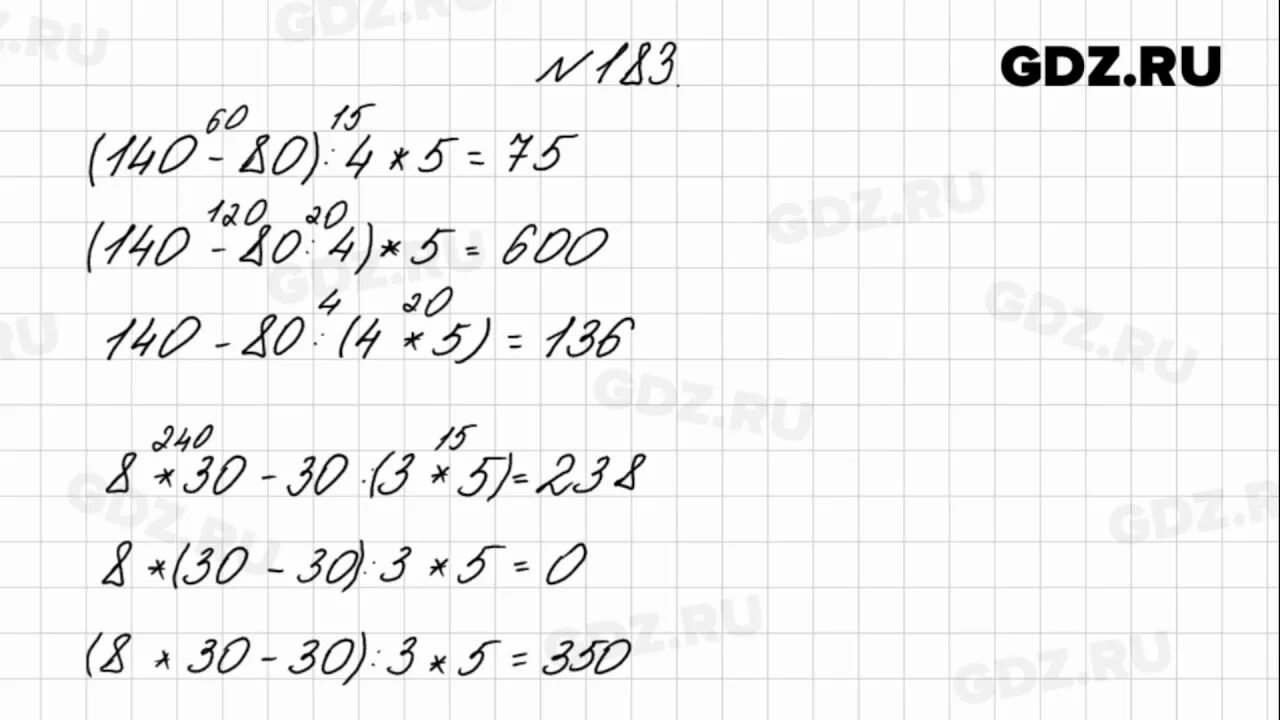 №183.
GDZ.RU
60 15
(140 - 80) : 4 * 5 = 75
120 20
(140 - 80 : 4) * 5 = 600
4 20
140 - 80 : (4 * 5) = 136
240 15
8 * 30 - 30 : (3 * 5) = 238
8 * (30 - 30) : 3 * 5 = 0
(8 * 30 - 30) : 3 * 5 = 350